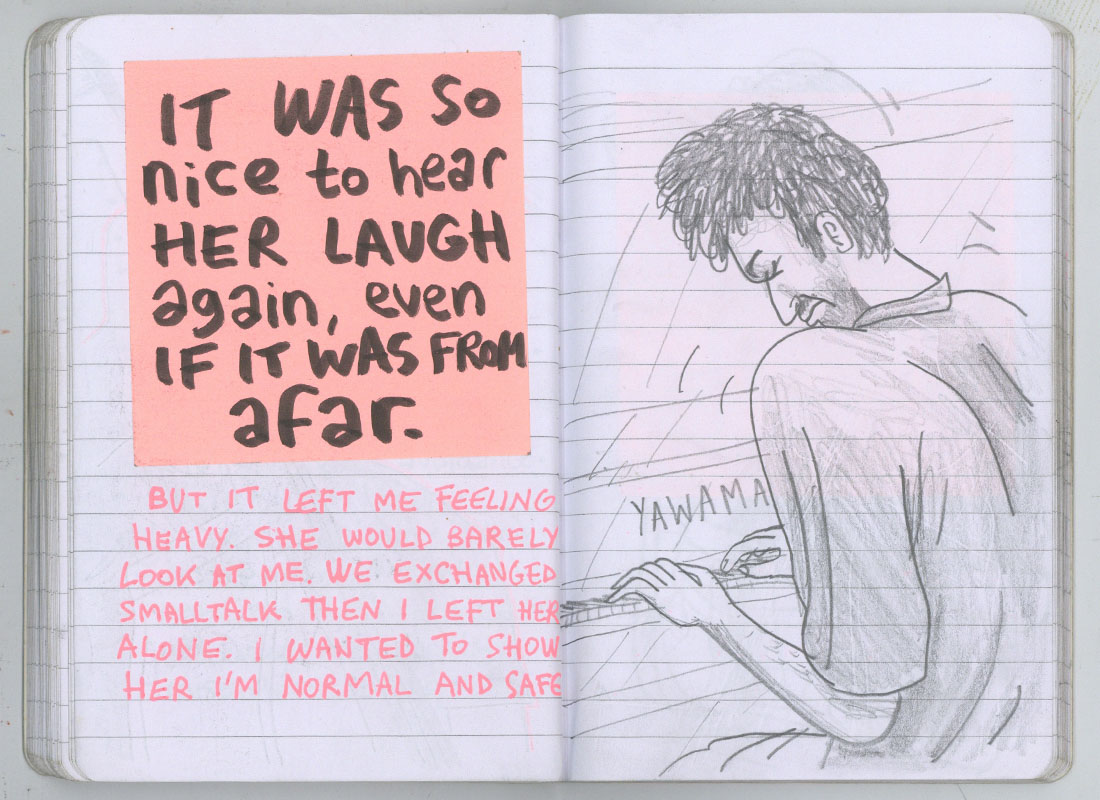 IT WAS SO
nice to hear
HER LAUGH
again, even
IF IT WAS FROM
afar.
BUT IT LEFT ME FEELING
HEAVY. SHE WOULD BARELY
LOOK AT ME. WE EXCHANGED
SMALLTALK THEN I LEFT HER
ALONE. I WANTED TO SHOW
HER I'M NORMAL AND SAFE
YAWAMA